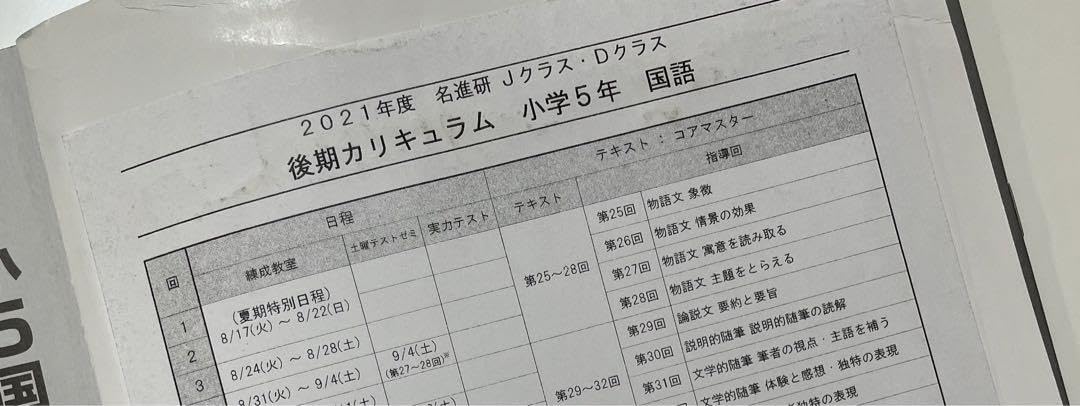 2021年度 名進研 Jクラス・Dクラス
後期カリキュラム 小学5年 国語
回 日程 テキスト : コアマスター
練成教室 土曜テストゼミ 実力テスト テキスト 指導回
1 (夏期特別日程)
8/17(火) ~ 8/22(日)
2 8/24(火) ~ 8/28(土)
3 8/31(火) ~ 9/4(土)
9/4(土)
(第27~28回)※
第25~28回
第25回 物語文 象徴
第26回 物語文 情景の効果
第27回 物語文 寓意を読み取る
第28回 物語文 主題をとらえる
第29~32回
第29回 論説文 要約と要旨
第30回 説明的随筆 説明的随筆の読解
第31回 文学的随筆 筆者の視点・主語を補う
文学的随筆 体験と感想・独特の表現
独特の表現
5
国